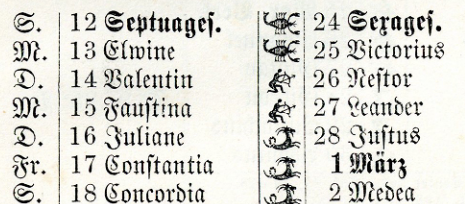 S. 12 Septuages. 24 Sexages.
M. 13 Elwine 25 Victorius
D. 14 Valentin 26 Nestor
M. 15 Faustina 27 Leander
D. 16 Juliane 28 Justus
Fr. 17 Constantia 1 März
S. 18 Concordia 2 Medea